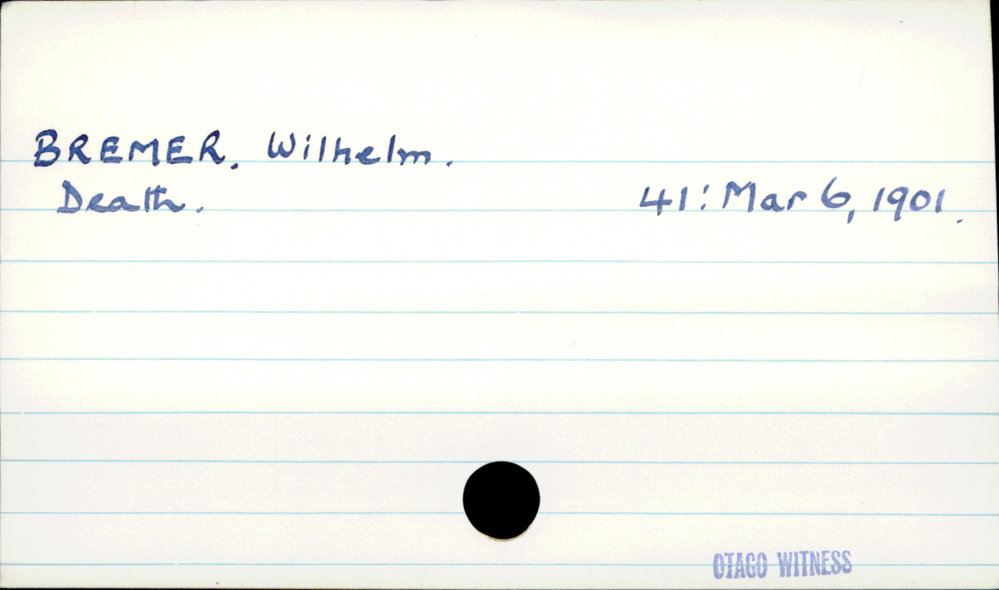 BREMER. Wilhelm.
Death. 41: Mar 6, 1901.
OTAGO WITNESS